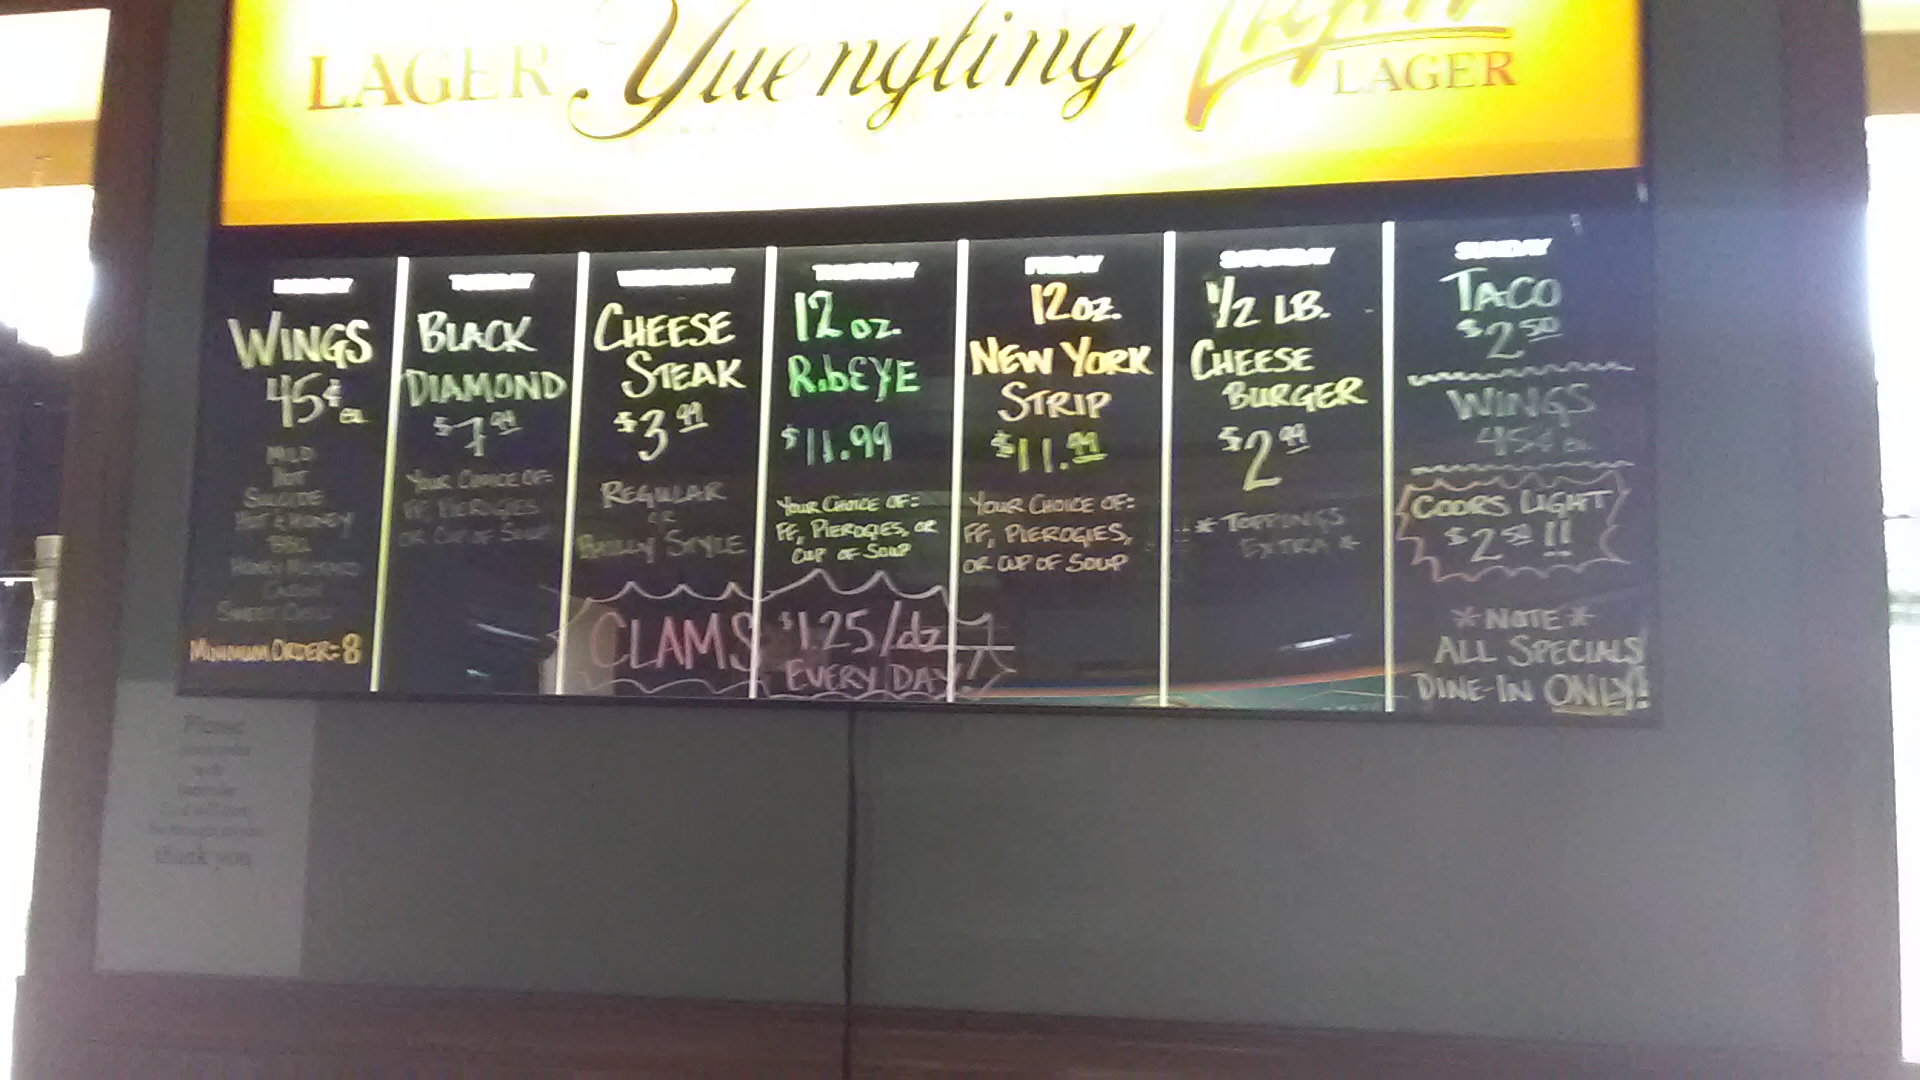 LAGER
Yuengling
Light
LAGER
MONDAY
WINGS
45¢ ea
MILD
HOT
SUICIDE
HOT & HONEY
BBQ
HONEY MUSTARD
CAJUN
MINIMUM ORDER = 8
TUESDAY
BLACK
DIAMOND
$7.99
YOUR CHOICE OF:
FF, PIEROGIES
OR CUP OF SOUP
WEDNESDAY
CHEESE
STEAK
$3.99
REGULAR
OR
PHILLY STYLE
THURSDAY
12 oz.
RibEYE
$11.99
YOUR CHOICE OF:
FF, PIEROGIES, OR
CUP OF SOUP
FRIDAY
12 oz.
NEW YORK
STRIP
$11.99
YOUR CHOICE OF:
FF, PIEROGIES,
OR CUP OF SOUP
SATURDAY
1/2 LB.
CHEESE
BURGER
$2.99
* TOPPINGS
EXTRA *
SUNDAY
TACO
$2.50
WINGS
45¢ ea
COORS LIGHT
$2.50!!
* NOTE *
ALL SPECIALS
DINE-IN ONLY!
CLAMS $1.25/dz
EVERY DAY!
Please
thank you